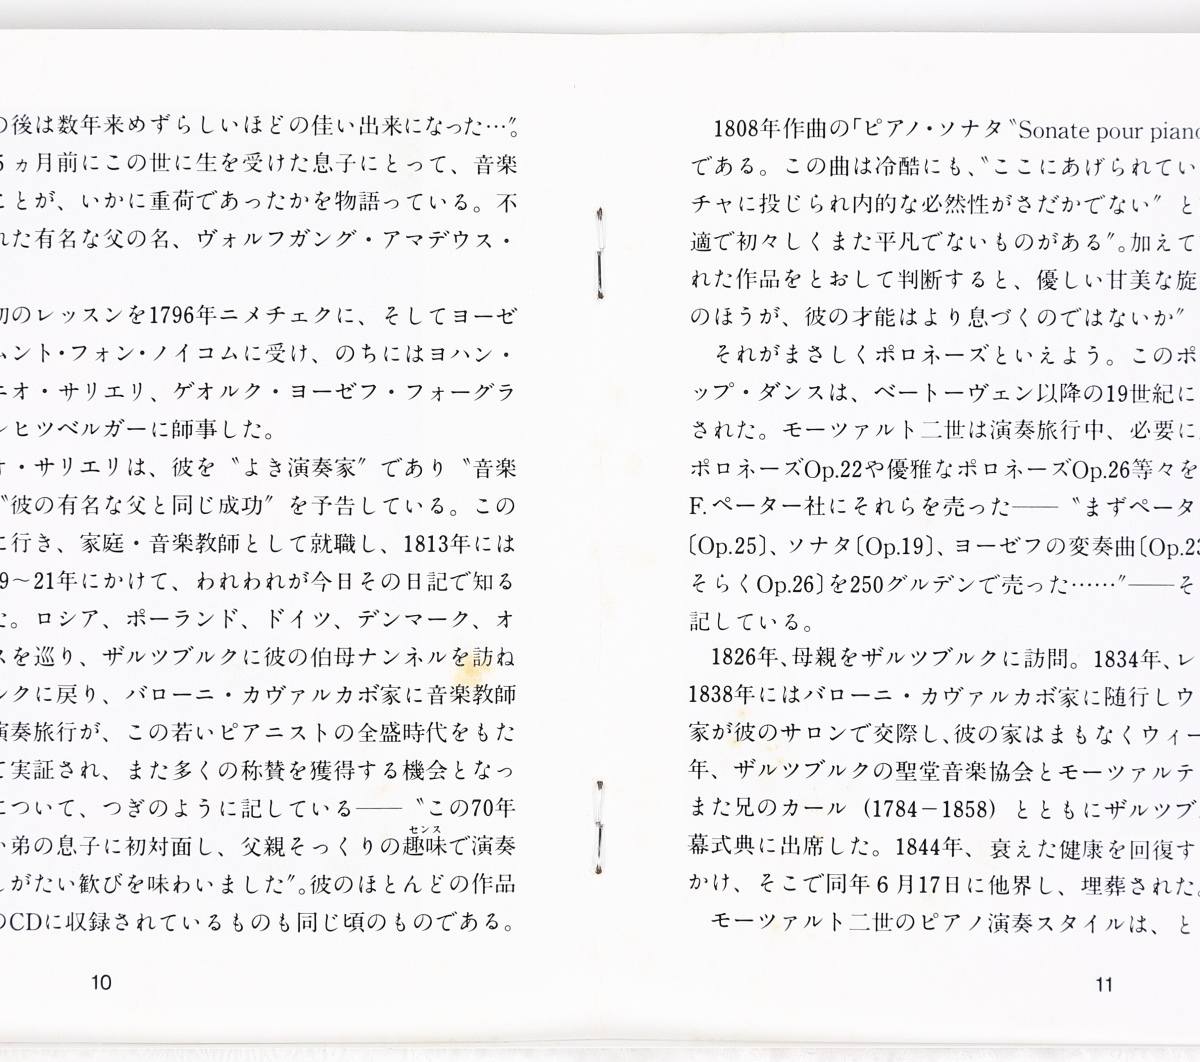 の後は数年来めずらしいほどの佳い出来になった…〟。
5ヵ月前にこの世に生を受けた息子にとって、音楽
ことが、いかに重荷であったかを物語っている。不
れた有名な父の名、ヴォルフガング・アマデウス・
初のレッスンを1796年ニメチェクに、そしてヨーゼ
ムント・フォン・ノイコムに受け、のちにはヨハン・
ニオ・サリエリ、ゲオルク・ヨーゼフ・フォーグラ
ンヒツベルガーに師事した。
オ・サリエリは、彼を〝よき演奏家〟であり〝音楽
〝彼の有名な父と同じ成功〟を予告している。この
に行き、家庭・音楽教師として就職し、1813年には
9～21年にかけて、われわれが今日その日記で知る
た。ロシア、ポーランド、ドイツ、デンマーク、オ
スを巡り、ザルツブルクに彼の伯母ナンネルを訪ね
ンクに戻り、バローニ・カヴァルカボ家に音楽教師
演奏旅行が、この若いピアニストの全盛時代をもた
て実証され、また多くの称賛を獲得する機会となっ
について、つぎのように記している――〝この70年
い弟の息子に初対面し、父親そっくりの趣味(センス)で演奏
しがたい歓びを味わいました〟。彼のほとんどの作品
のCDに収録されているものも同じ頃のものである。
10
1808年作曲の「ピアノ・ソナタ〝Sonate pour piano
である。この曲は冷酷にも、〝ここにあげられてい
チャに投じられ内的な必然性がさだかでない〟と
適で初々しくまた平凡でないものがある〟。加えて
れた作品をとおして判断すると、優しい甘美な旋
のほうが、彼の才能はより息づくのではないか〟
それがまさしくポロネーズといえよう。このポ
ップ・ダンスは、ベートーヴェン以降の19世紀に
された。モーツァルト二世は演奏旅行中、必要に
ポロネーズOp.22や優雅なポロネーズOp.26等々を
F.ペーター社にそれらを売った――〝まずペータ
〔Op.25〕、ソナタ〔Op.19〕、ヨーゼフの変奏曲〔Op.23
そらくOp.26〕を250グルデンで売った……〟――そ
記している。
1826年、母親をザルツブルクに訪問。1834年、レ
1838年にはバローニ・カヴァルカボ家に随行しウ
家が彼のサロンで交際し、彼の家はまもなくウィー
年、ザルツブルクの聖堂音楽協会とモーツァルテ
また兄のカール（1784－1858）とともにザルツブ
幕式典に出席した。1844年、衰えた健康を回復す
かけ、そこで同年6月17日に他界し、埋葬された。
モーツァルト二世のピアノ演奏スタイルは、と
11